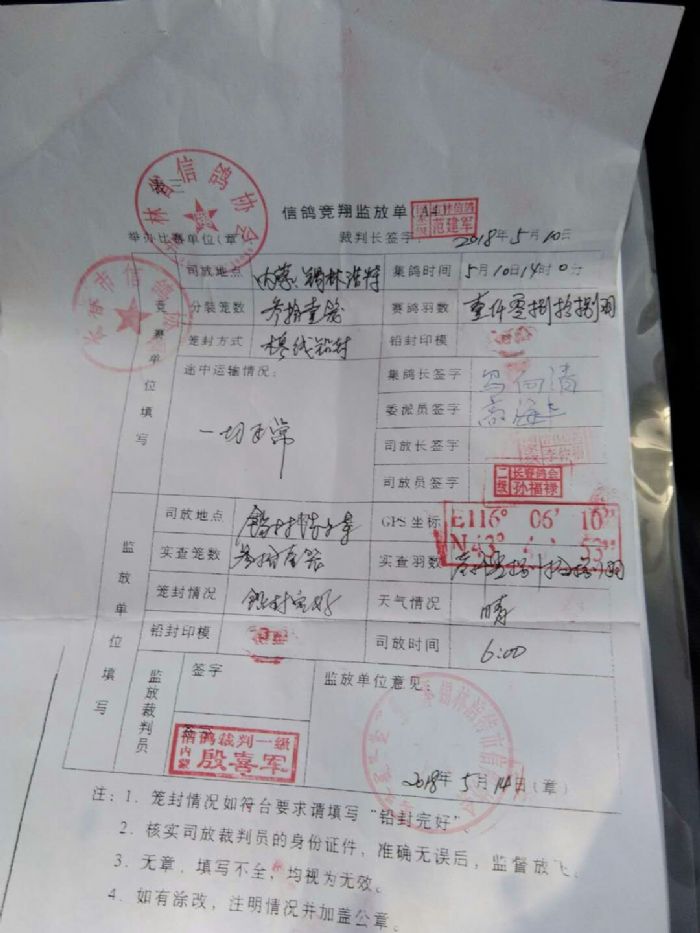 林省信鸽协会
信鸽竞翔监放单
(A4)
林信鸽
范建军
举办比赛单位(章
裁判长签字:
2018年5月10日
长春市信鸽
竞赛单位填写
司放地点
内蒙.锡林浩特
集鸽时间
5月10日14时0分
分装笼数
叁拾壹笼
赛鸽羽数
壹仟零捌拾捌羽
笼封方式
铅封印模
途中运输情况:
一切正常
集鸽长签字
委派员签字
司放长签字
司放员签字
二级
长春鸽会
孙福禄
监放单位填写
司放地点
GPS坐标
E116° 06' 10"
实查笼数
实查羽数
笼封情况
铅封完好
天气情况
晴
铅封印模
司放时间
6:00
监放裁判员
签字
信鸽裁判一级
内蒙
殷喜军
监放单位意见:
锡林浩特市信鸽
2018年5月14日(章)
注:1. 笼封情况如符合要求请填写“铅封完好”.
2. 核实司放裁判员的身份证件,准确无误后,监督放飞.
3. 无章,填写不全,均视为无效。
4. 如有涂改,注明情况并加盖公章。